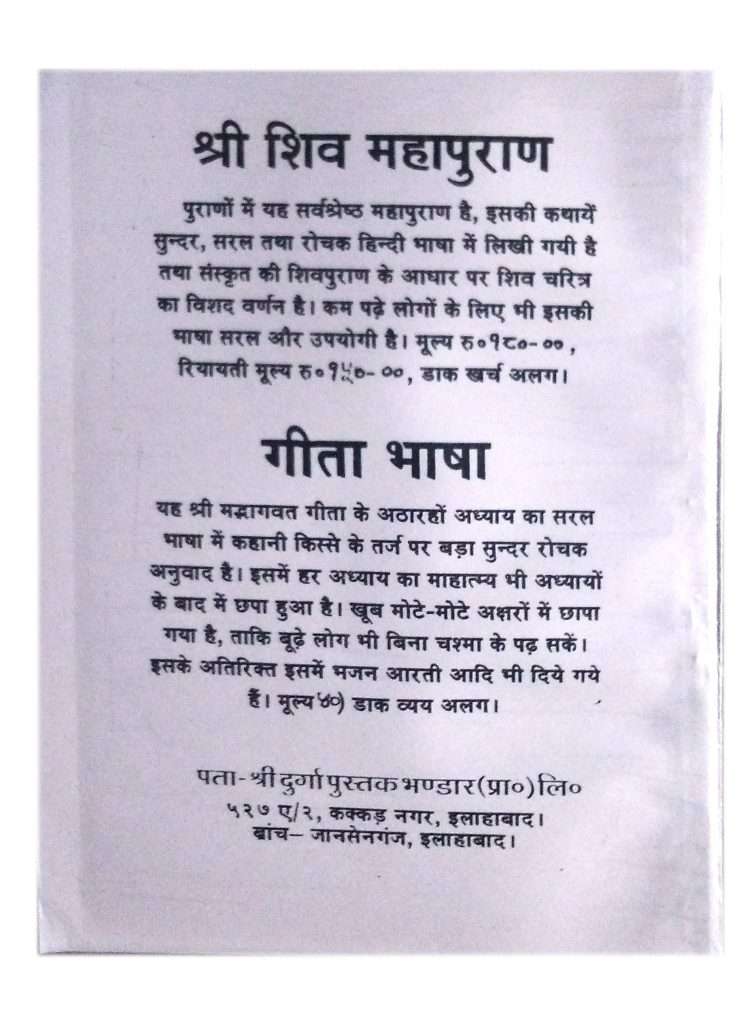 श्री शिव महापुराण
पुराणों में यह सर्वश्रेष्ठ महापुराण है, इसकी कथायें
सुन्दर, सरल तथा रोचक हिन्दी भाषा में लिखी गयी है
तथा संस्कृत की शिवपुराण के आधार पर शिव चरित्र
का विशद वर्णन है। कम पढ़े लोगों के लिए भी इसकी
भाषा सरल और उपयोगी है। मूल्य रु०१८०-००,
रियायती मूल्य रु०१५०-००, डाक खर्च अलग।
गीता भाषा
यह श्री मद्भागवत गीता के अठारहों अध्याय का सरल
भाषा में कहानी किस्से के तर्ज पर बड़ा सुन्दर रोचक
अनुवाद है। इसमें हर अध्याय का माहात्म्य भी अध्यायों
के बाद में छपा हुआ है। खूब मोटे-मोटे अक्षरों में छापा
गया है, ताकि बूढ़े लोग भी बिना चश्मा के पढ़ सकें।
इसके अतिरिक्त इसमें भजन आरती आदि भी दिये गये
हैं। मूल्य डाक व्यय अलग।
पता-श्री दुर्गा पुस्तक भण्डार(प्रा०)लि०
५२७ ए/२, कक्कड़ नगर, इलाहाबाद।
ब्रांच– जानसेनगंज, इलाहाबाद।